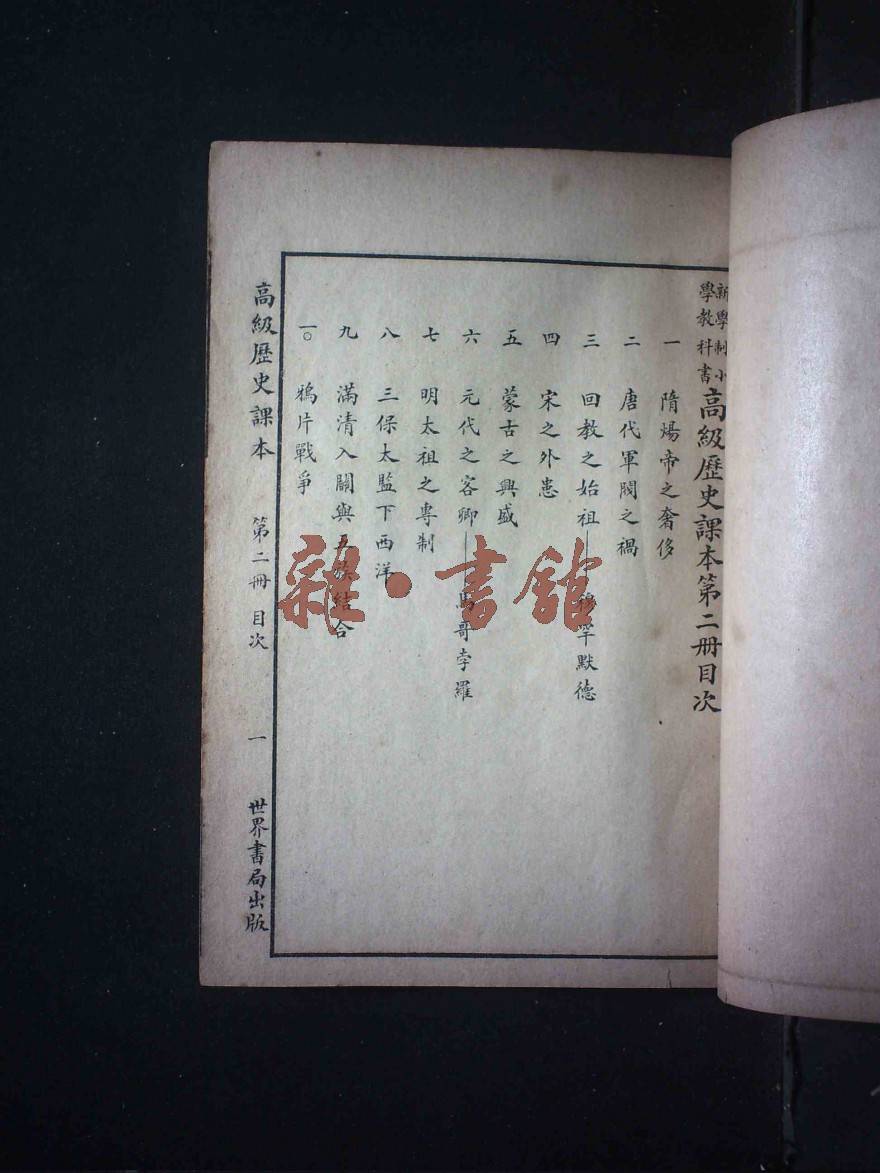 新學制小
學教科書
高級歷史課本第二册目次
一 隋煬帝之奢侈
二 唐代軍閥之禍
三 回教之始祖——穆罕默德
四 宋之外患
五 蒙古之興盛
六 元代之客卿——馬哥孛羅
七 明太祖之專制
八 三保太監下西洋
九 滿清入關與五族結合
一〇 鴉片戰爭
高級歷史課本 第二册 目次 一 世界書局出版
雜·書館